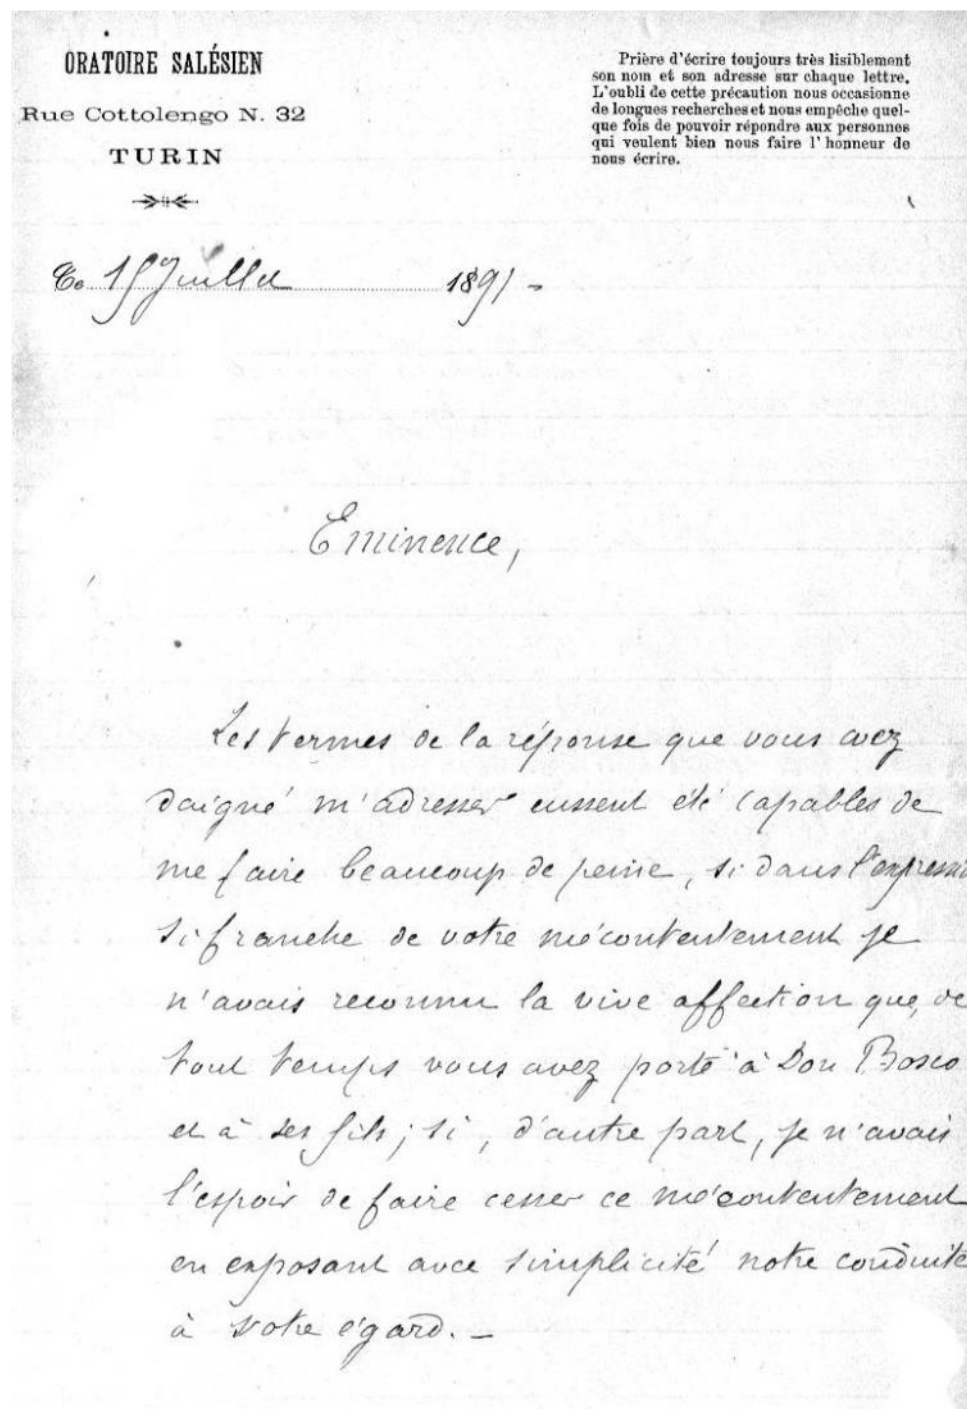 ORATOIRE SALÉSIEN
Rue Cottolengo N. 32
TURIN
Prière d'écrire toujours très lisiblement
son nom et son adresse sur chaque lettre.
L'oubli de cette précaution nous occasionne
de longues recherches et nous empêche quel-
que fois de pouvoir répondre aux personnes
qui veulent bien nous faire l'honneur de
nous écrire.
Ce 15 Juillet 1891 -
Eminence,
Les termes de la réponse que vous avez
daigné m'adresser eussent été capables de
me faire beaucoup de peine, si dans l'expressi
si franche de votre mécontentement je
n'avais reconnu la vive affection que, de
tout temps vous avez porté à Don Bosco
et à ses fils; si, d'autre part, je n'avais
l'espoir de faire cesser ce mécontentement
en exposant avec simplicité notre conduite
à votre égard. -